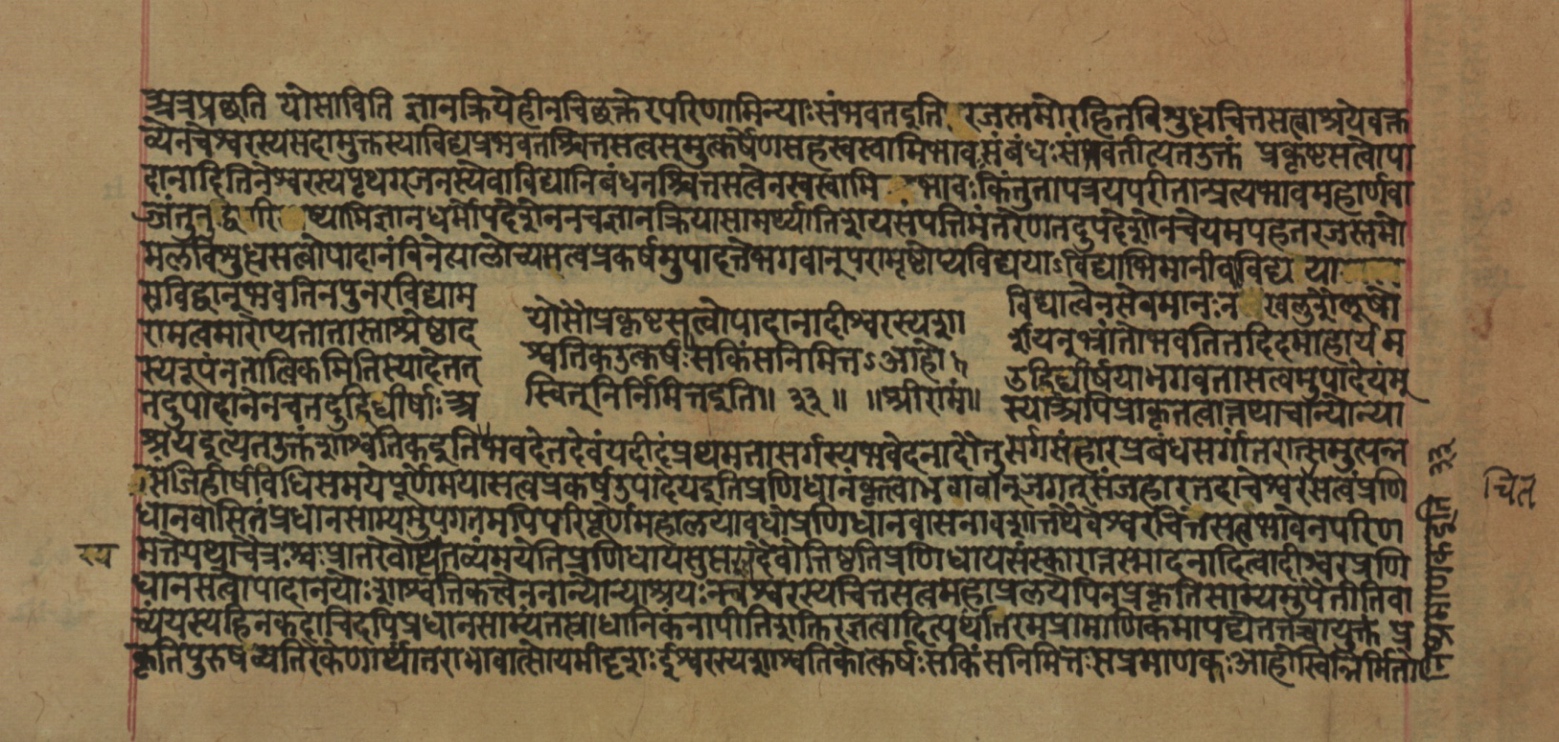 अत्रपृछति योसाविति ज्ञानक्रियेहीनचिछक्तेरपरिणामिन्याःसंभवतइति रजस्तमोरहितविशुद्धचित्तसत्वाश्रयेवक्त
व्येनचेश्वरस्यसदामुक्तस्याविद्यप्रभवनश्चित्तसत्वसमुत्कर्षेणसहस्वस्वामिभावसंबंधःसंभवतीत्यतउक्तं प्रकृष्टसत्वोपा
दानादितिनेश्वरस्यपृथग्जनस्येवाविद्यानिबंधनश्चित्तसत्वेनस्वस्वामि भावःकिंतुतापत्रयपरीतान्प्रेत्यभावमहार्णवा
ज्जंतूनु ष्यामिज्ञानधर्मोपदेशेननचज्ञानक्रियासामर्थ्यातिशयसंपत्तिमंतरेणतदुपदेशोनचेयमपहतरजस्तमो
मलविशुद्धसत्वोपादानंविनेत्यालोच्यसत्वप्रकर्षमुपादत्तेभगवानुपरामृष्टोप्यविद्ययाऽविद्याभिमानीवाविद्य या
सविद्वान्भवतिनपुनरविद्याम
विद्यात्वेनसेवमानःन खलुशैलूषो
योसौप्रकृष्टसत्वोपादानादीश्वरस्यशा
रामत्वमारोप्यतातास्ताश्चेष्टाद
र्शयन्भ्रांतोभवतितदिदमाहार्यम
श्वतिकउत्कर्षःसकिंसनिमित्तऽआहो
स्यरूपंनतात्विकमितिस्यादेतत्
उद्दिधीर्षयाभगवतासत्वमुपादेयंम्
स्वित्निर्निमित्तइति॥ ३३ ॥ ॥श्रीरामं॥
तदुपादानेनचतदुद्दिधीर्षाःअ
स्याअपिप्राकृतत्वात्तथाचान्योन्या
श्रयइत्यतउक्तंशाश्वतिकइतिभवदेतदेवंयदीदंप्रथमतासर्गस्यभवेदनादौतुसर्गसंहारप्रबंधसर्गांतरात्समुत्पन्न
संजिहीर्षावधिसमयेपूर्णेमयासत्वप्रकर्षउपादेयइतिप्रणिधानंकृत्वाभगवान्जगत्संजहारतदाचेश्वरसत्वंप्रणि
धानवासितंप्रधानसाम्यमुपगतमपिपरिपूर्णेमहाप्रलयावधौप्रणिधानवासनावशात्तथैवेश्वरचित्तसत्वभावेनपरिण
मतेयथाचैत्रःश्वःप्रातरेवोत्थातव्यंमयेतिप्रणिधायसुप्तस्तदैवोत्तिष्ठतिप्रणिधायसंस्कारात्तस्मादनादित्वादीश्वरप्रणि
धानसत्वोपादानयोःशाश्वतिकत्वेननान्योन्याश्रयःनचेश्वरस्यचित्तसत्वमहाप्रलयेपिनप्रकृतिसाम्यमुपैतीतिवा
च्यंयस्यहिनकदाचिदपिप्रधानसाम्यंनतत्प्राधानिकंनापीतिशक्तिरज्ञत्वादित्यर्थांतरमप्रामाणिकमापद्येततच्चायुक्तं प्र
कृतिपुरुषव्यतिरेकेणार्थान्तराभावात्सोयमीदृशःईश्वरस्यशाश्वतिकोत्कर्षःसकिंसनिमित्तःसप्रमाणकःआहोस्विन्निर्निमित्तो
निष्प्रमाणकइति ३३
चित
स्य